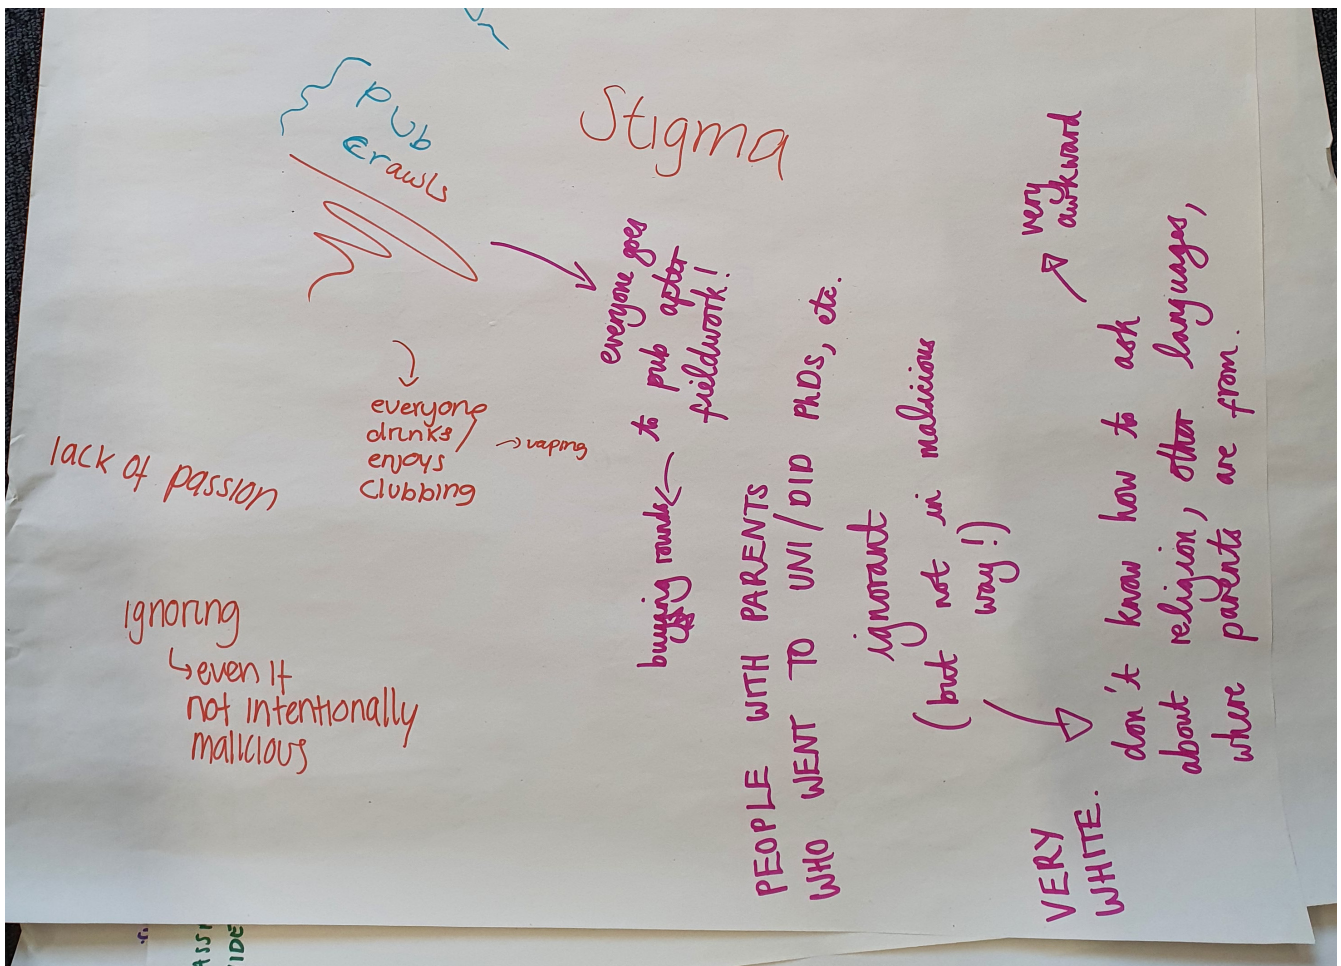 Pub
crawls
Stigma
everyone
drinks/
enjoys
clubbing
→ vaping
lack of passion
ignoring
↳ even if
not intentionally
malicious
everyone goes
to pub after
fieldwork!
buying rounds
PEOPLE WITH PARENTS
WHO WENT TO UNI/DID PhDs, etc.
ignorant
(but not in malicious
way!)
VERY
WHITE.
don't know how to ask
about religion, other languages,
where parents are from.
very
awkward
ASSI
IDE